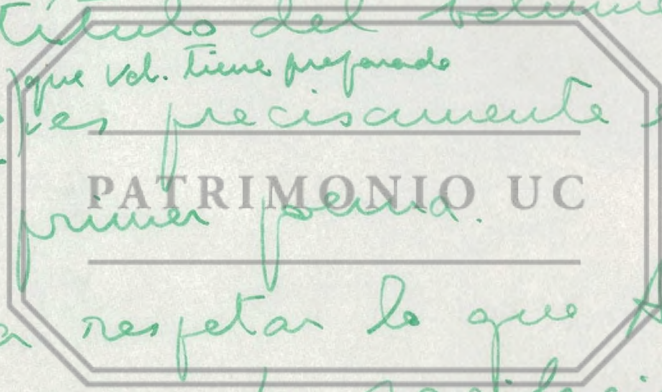 título del volumen
que Vd. tiene preparado
es precisamente
PATRIMONIO UC
primer poema.
respetar lo que